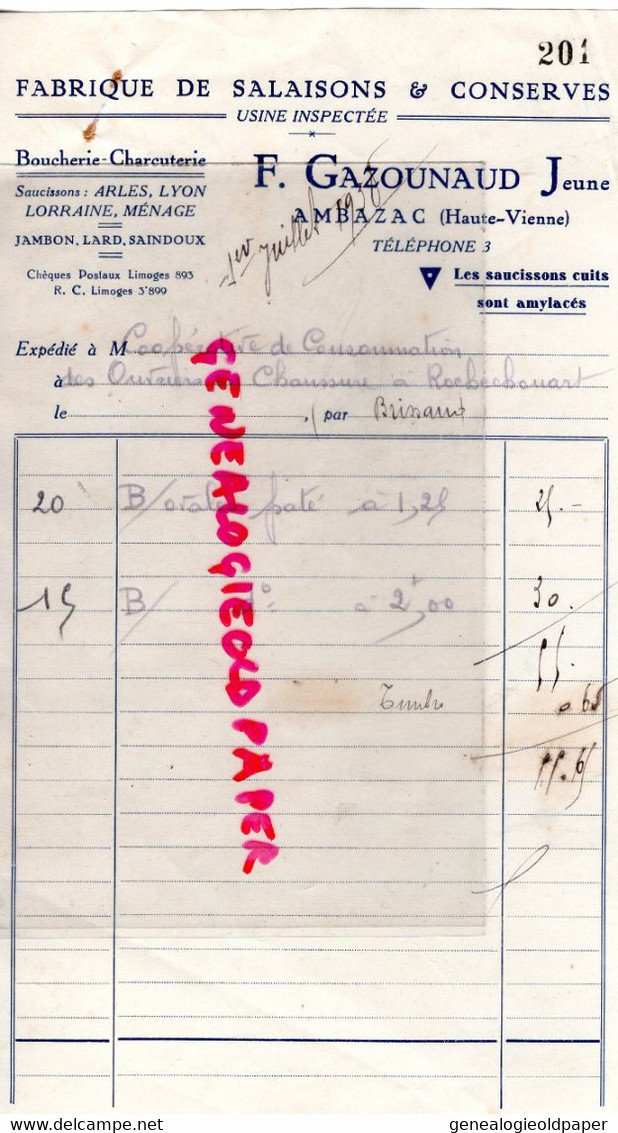 201
FABRIQUE DE SALAISONS & CONSERVES
USINE INSPECTÉE
Boucherie-Charcuterie
Saucissons : ARLES, LYON
LORRAINE, MÉNAGE
JAMBON, LARD, SAINDOUX
Chèques Postaux Limoges 893
R. C. Limoges 3'899
F. GAZOUNAUD Jeune
AMBAZAC (Haute-Vienne)
TÉLÉPHONE 3
Les saucissons cuits
sont amylacés
1er juillet
Expédié à M Coopérative de Consommation
à des Ouvriers en Chaussure à Rochechouart
le , par
20 B/ ovales paté à 1,25 25.-
15 B/ do à 2,00 30.
55.
Timbre 0 65
55.65
GENEALOGIEOLDPAPER
delcampe.net
genealogieoldpaper